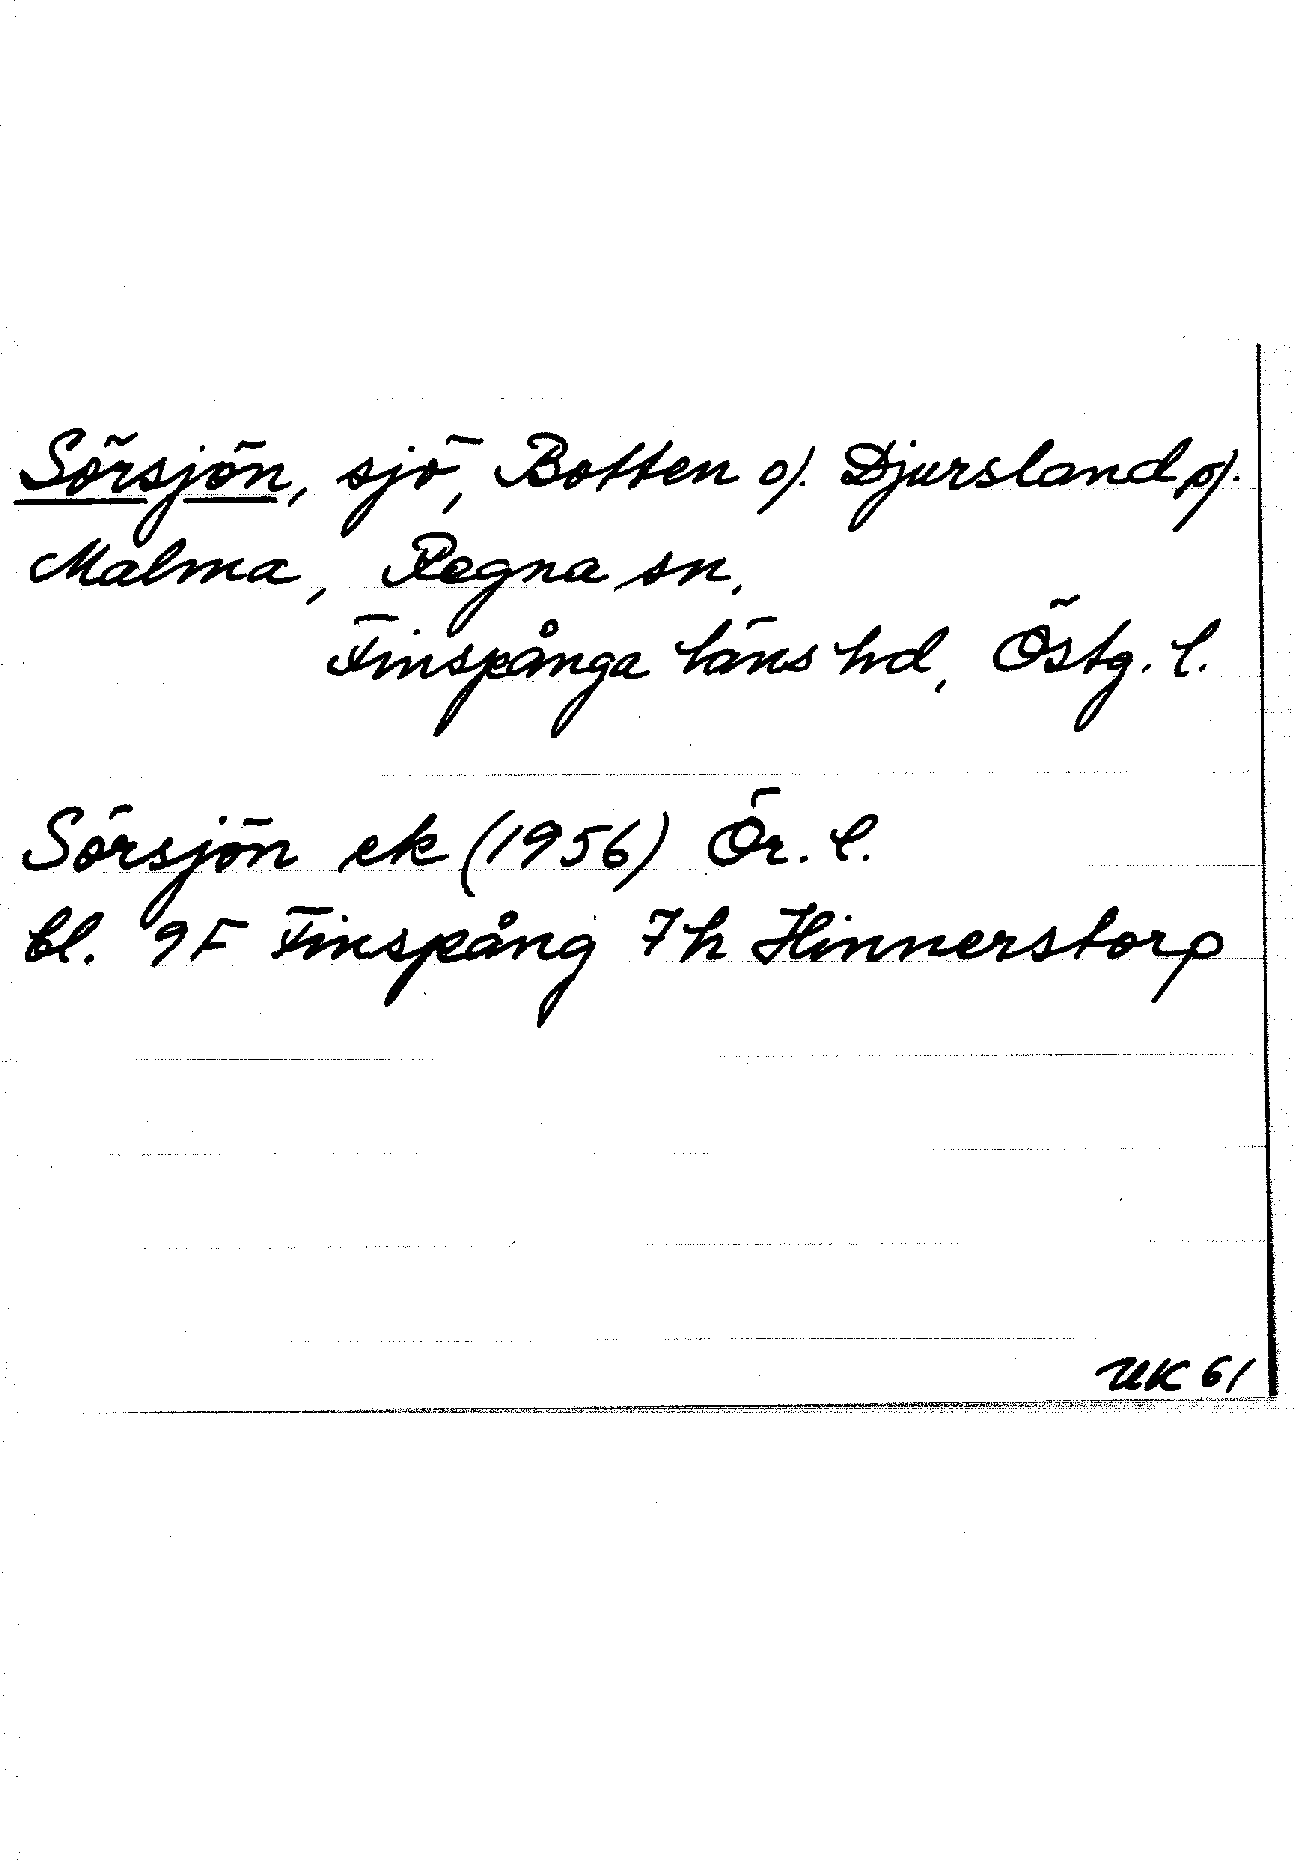 Sörsjön, sjö, Botten o/. Djursland p/.
Malma, Regna sn,
Finspånga läns hd, Östg. l.
Sörsjön ek (1956) Ör. l.
bl. 9F Finspång 7h Hinnerstorp
UK 61